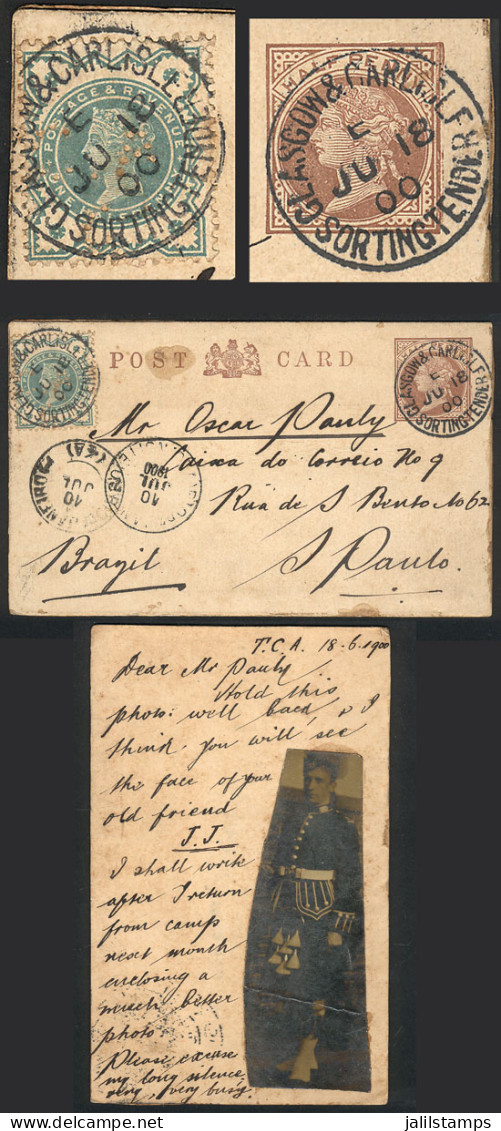 GLASGOW & CARLISLE
SORTING TENDER
E
JU 18
00
POSTAGE & REVENUE
GLASGOW & CARLISLE
SORTING TENDER
E
JU 18
00
HALF PENNY
POST CARD
GLASGOW & CARLISLE
SORTING TENDER
E
JU 18
00
GLASGOW & CARLISLE
SORTING TENDER
E
JU 18
00
Mr Oscar Pauly
Caixa do Correio No 9
Rua de S Bento No 62
Brazil S Paulo.
10
JUL
1900
10
JUL
T.C.A. 18-6-1900
Dear Mr Pauly
Hold this
photo: well back, & I
think you will see
the face of your
old friend
J.J.
I shall write
after I return
from camp
next month
enclosing a
much better
photo.
Please excuse
my long silence
very, very busy.
www.jalilstamps.com